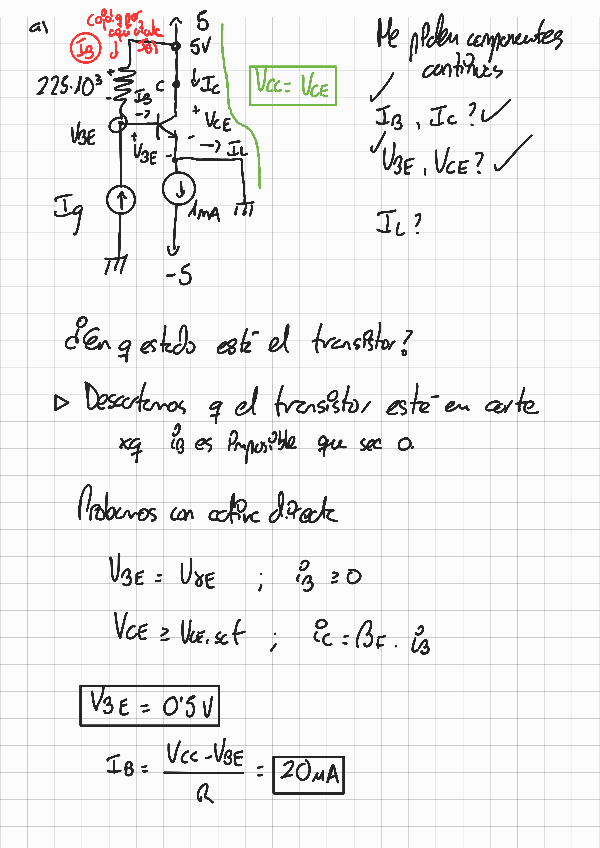 a)
5
5V
I_B
225·10³
I_B
C
I_C
V_CE
V_BE
V_BE
I_L
I_g
1mA
-5
V_CC = V_CE
Me piden componentes
continuas
I_B, I_C?
V_BE, V_CE?
I_L?
¿En q estado está el transistor?
▷ Descartamos q el transistor esté en corte
xq i_B es imposible que sea 0.
Probamos con activa directa
V_BE = V_γE ; i_B ≥ 0
V_CE ≥ V_CE,sat ; i_C = β_F · i_B
V_BE = 0'5V
I_B = (V_CC - V_BE) / R = 20 μA